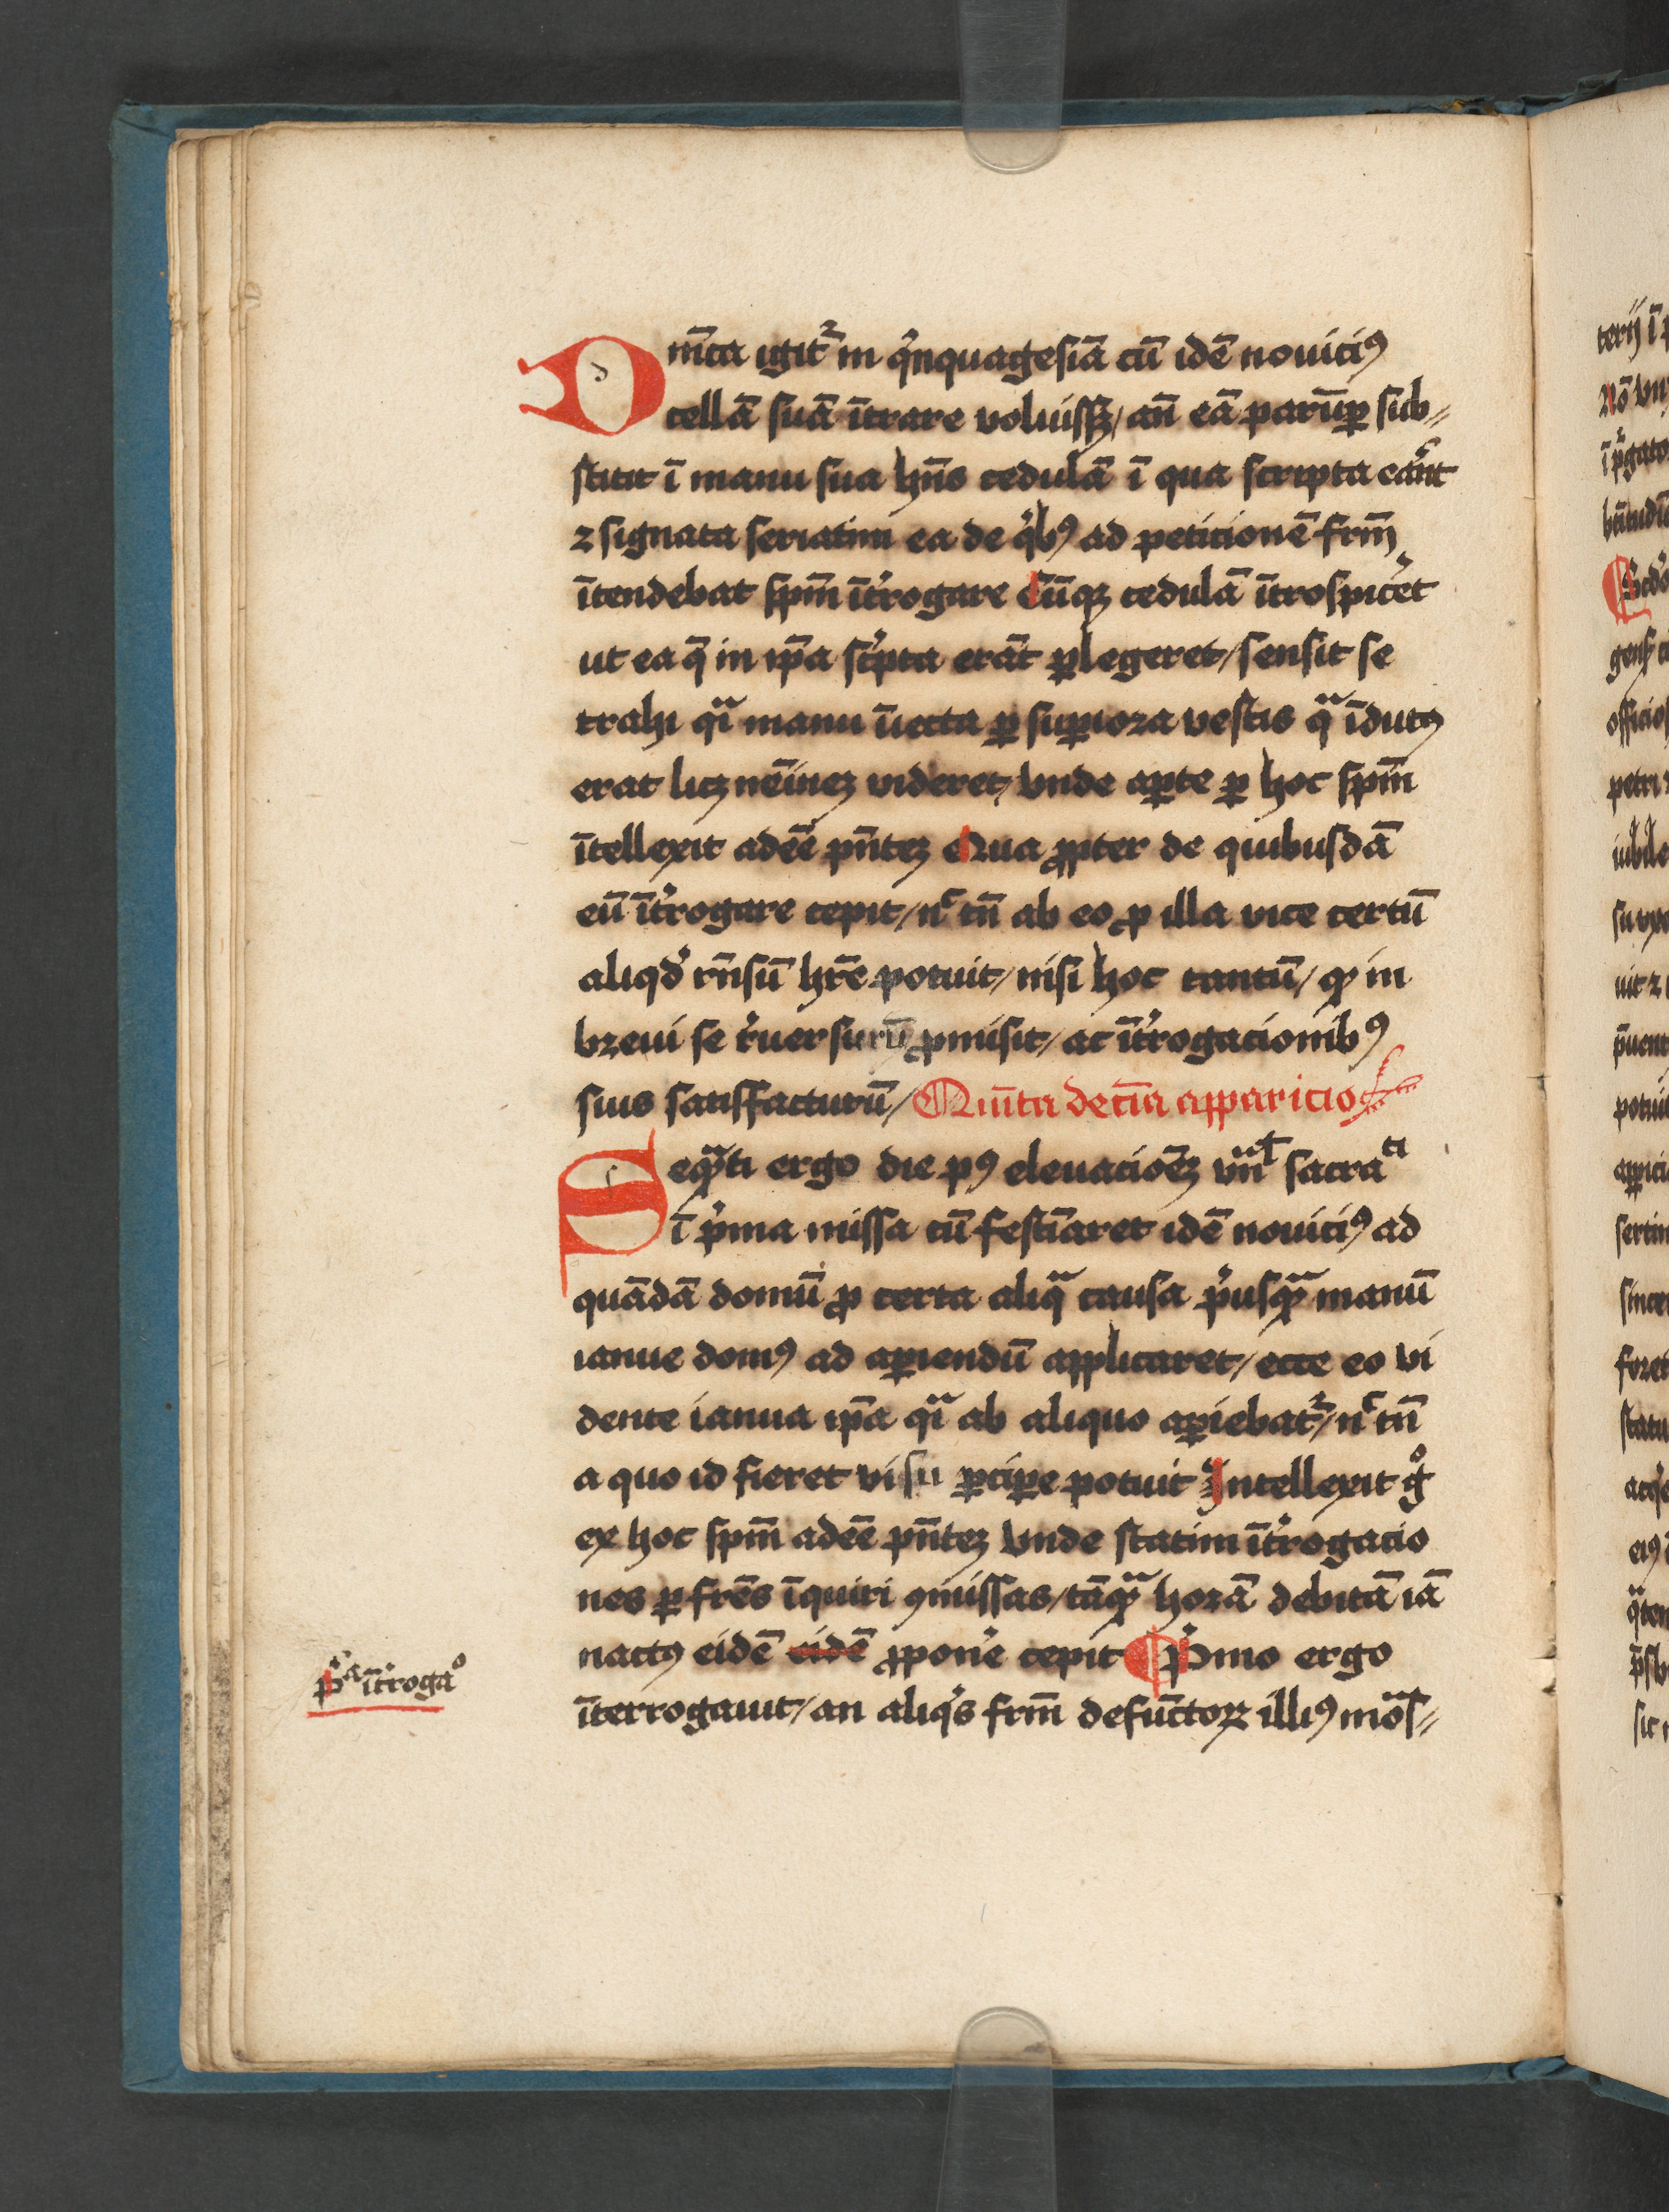 Dn̄ica igit᷑ in qͥnquagesiā cū idē nouiciꝰ
cellā suā ītrare voluissꝫ / an̄ eā parūꝑ sub⸗
stitit ī manu sua hn̄s cedulā ī qua scripta eān̄t
⁊ signata seriatim ea de qͥbꝰ ad peticionē frm̄
ītendebat spm̄ īt͛rogare Cūqꝫ cedulā ītrospic͛et
ut ea q̄ in ip̄a scͥpta erāt ꝑlegeret / sensit se
trahi qͣi manu īiecta ꝑ suꝑiora vestis qᷓ īdutꝰ
erat licꝫ nēineꝫ videret / Vnde aꝑte ꝑ hoc spm̄
ītellexit adeē pn̄teꝫ Qua ꝓpter de quibusdā
eū īt͛rogare cepit / nͨ tn̄ ab eo ꝓ illa vice certū
aliqdͥ rn̄sū hr̄e potuit / nisi hoc tantū / ꝙ in
breui se r͛uersurū ꝓmisit / ac īt͛rogacionibꝰ
suis satisfacturū / Quīta decīa apparicio
Seqᷓnti ergo die pꝰ eleuacioēꝫ vn̄ł sacraᵗⁱ
ī pͥma missa cū festīaret idē nouiciꝰ ad
quādā domū ꝓ certa aliqᷓ causa pͥusqᷓ manū
ianue domꝰ ad aꝑiendū applicaret / ecce eo vi
dente ianua ip̄a qͣi ab aliquo aꝑiebat᷑ / nͨ tn̄
a quo id fieret visu ꝑciꝑe potuit Intellexit gͦ
ex hoc spm̄ adeē pn̄teꝫ Vnde statim īt͛rogacio
nes ꝑ frēs īquiri ꝯmissas / tāqᷓ horā debitā iā
nactꝰ eidē eidē ꝓpon͛e cepit ¶ Pͥmo ergo
īterrogauit / an aliqͥs frm̄ defūctoꝝ illiꝰ moᷓs⸗
pͥᵃ īt͛rogaᵒ